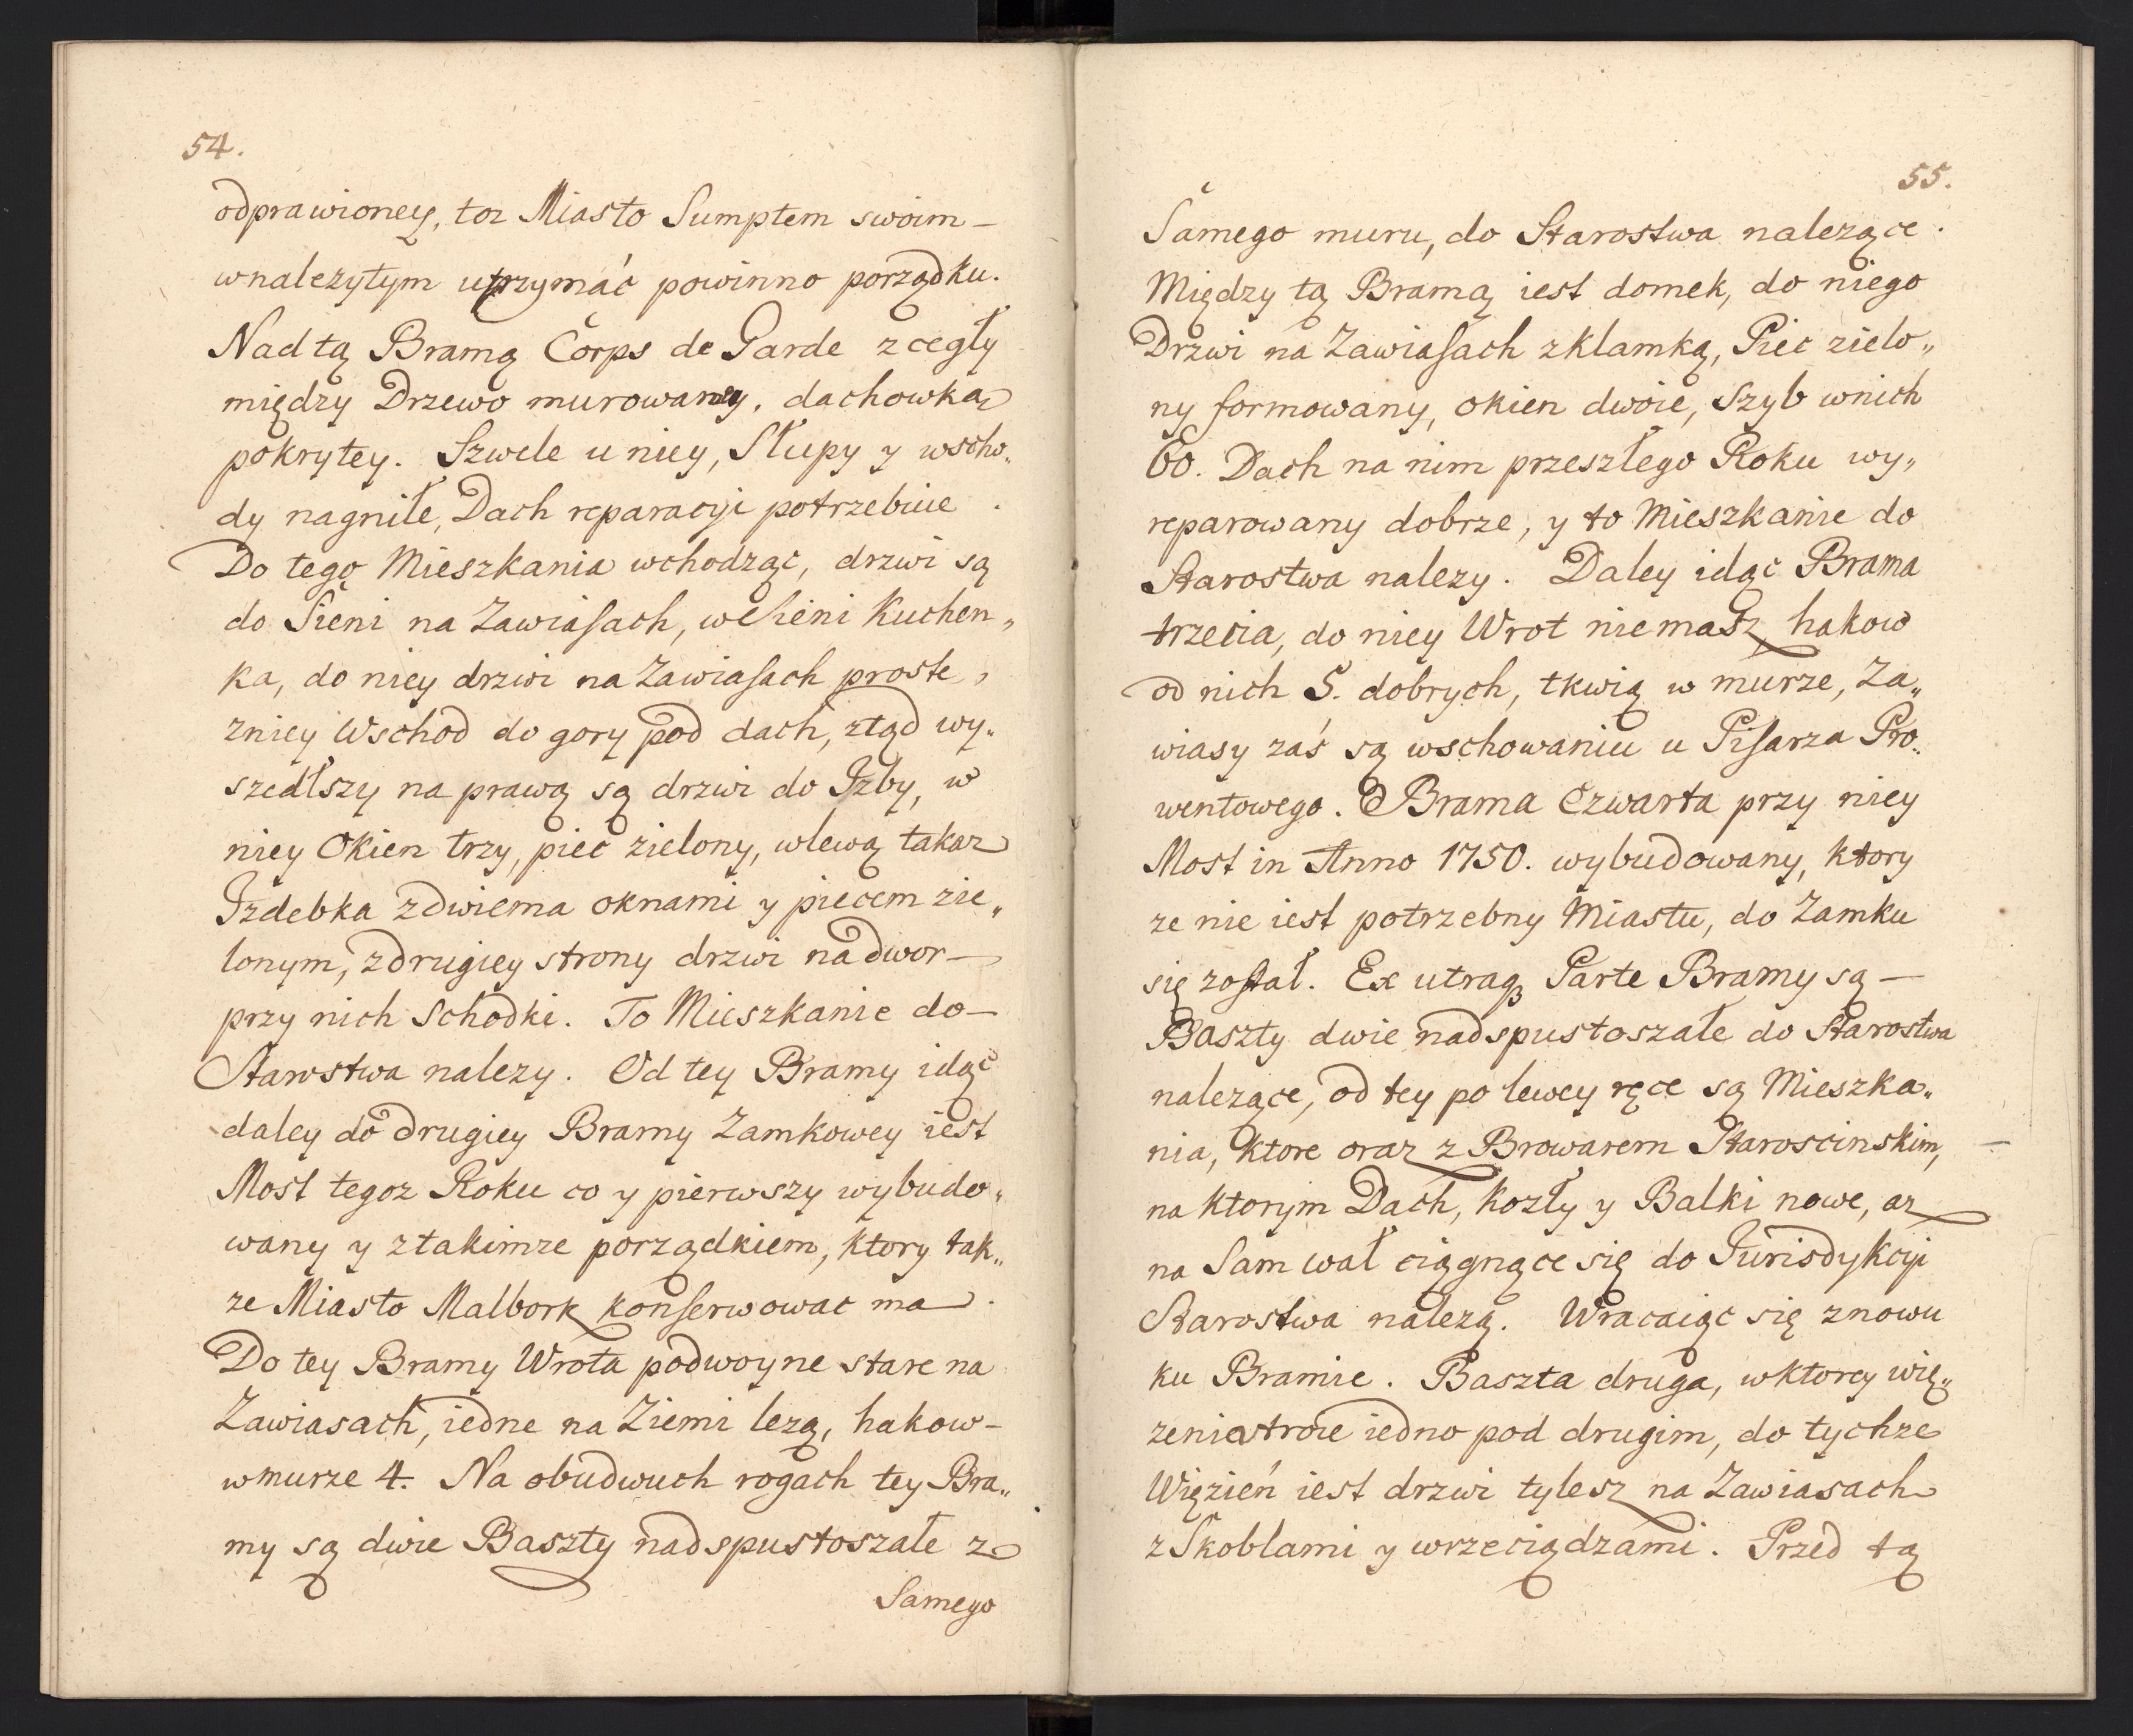 54.
odprawioney, toz Miasto Sumptem swoim –
wnalezytym utrzymać powinno porządku.
Nad tą Bramą Corps de Garde z cegły
między Drzewo murowaney, dachowką
pokrytey. Szwele u niey, Słupy y wscho„
dy nagniłe, Dach reparacyi potrzebuie.
Do tego Mieszkania wchodząc, drzwi są
do Sieni na Zawiasach, wesieni Kuchen„
ka, do niey drzwi na Zawiasach proste,
zniey Wschod do gory pod dach, ztąd wy„
szedłszy na prawą są drzwi do Izby, w
niey Okien trzy, piec zielony, wlewą takaz
Izdebka zdwiema oknami y piecem zie„
lonym, zdrugiey strony drzwi na dwor –
przy nich Schodki. To Mieszkanie do –
Starostwa nalezy. Od tey Bramy idąc
daley do drugiey Bramy Zamkowey iest
Most tegoz Roku co y pierwszy wybudo„
wany y ztakimze porządkiem, ktory tak„
ze Miasto Malbork konserwowac ma.
Do tey Bramy Wrota podwoyne stare na
Zawiasach, iedne na Ziemi lezą, hakow –
w murze 4. Na obudwuch rogach tey Bra„
my są dwie Baszty nadspustoszałe z
Samego
55.
Samego muru, do Starostwa nalezące.
Między tą Bramą iest domek, do niego
Drzwi na Zawiasach zklamką, Piec zielo„
ny formowany, okien dwoie, Szyb wnich
60. Dach na nim przeszłego Roku wy„
reparowany dobrze, y to Mieszkanie do
Starostwa nalezy. Daley idąc Brama
trzecia, do niey Wrot niemasz, hakow
od nich 5. dobrych, tkwią w murze, Za„
wiasy zaś są wschowaniu u Pisarza Pro„
wentowego. Brama Czwarta przy niey
Most in Anno 1750. wybudowany, ktory
ze nie iest potrzebny Miastu, do Zamku
się został. Ex utraq₃ Parte Bramy są –
Baszty dwie nadspustoszałe do Starostwa
nalezące, od tey po lewey ręce są Mieszka„
nia, ktore oraz z Browarem Staroscinskim,
na ktorym Dach, Kozły y Balki nowe, az
na Sam wał ciągnące się do Jurisdykcyi
Starostwa nalezą. Wracaiąc się znowu
ku Bramie. Baszta druga, wktorey wię„
zenia troie iedno pod drugim, do tychze
Więzień iest drzwi tylesz na Zawiasach
z Skoblami y wrzeciądzami. Przed tą